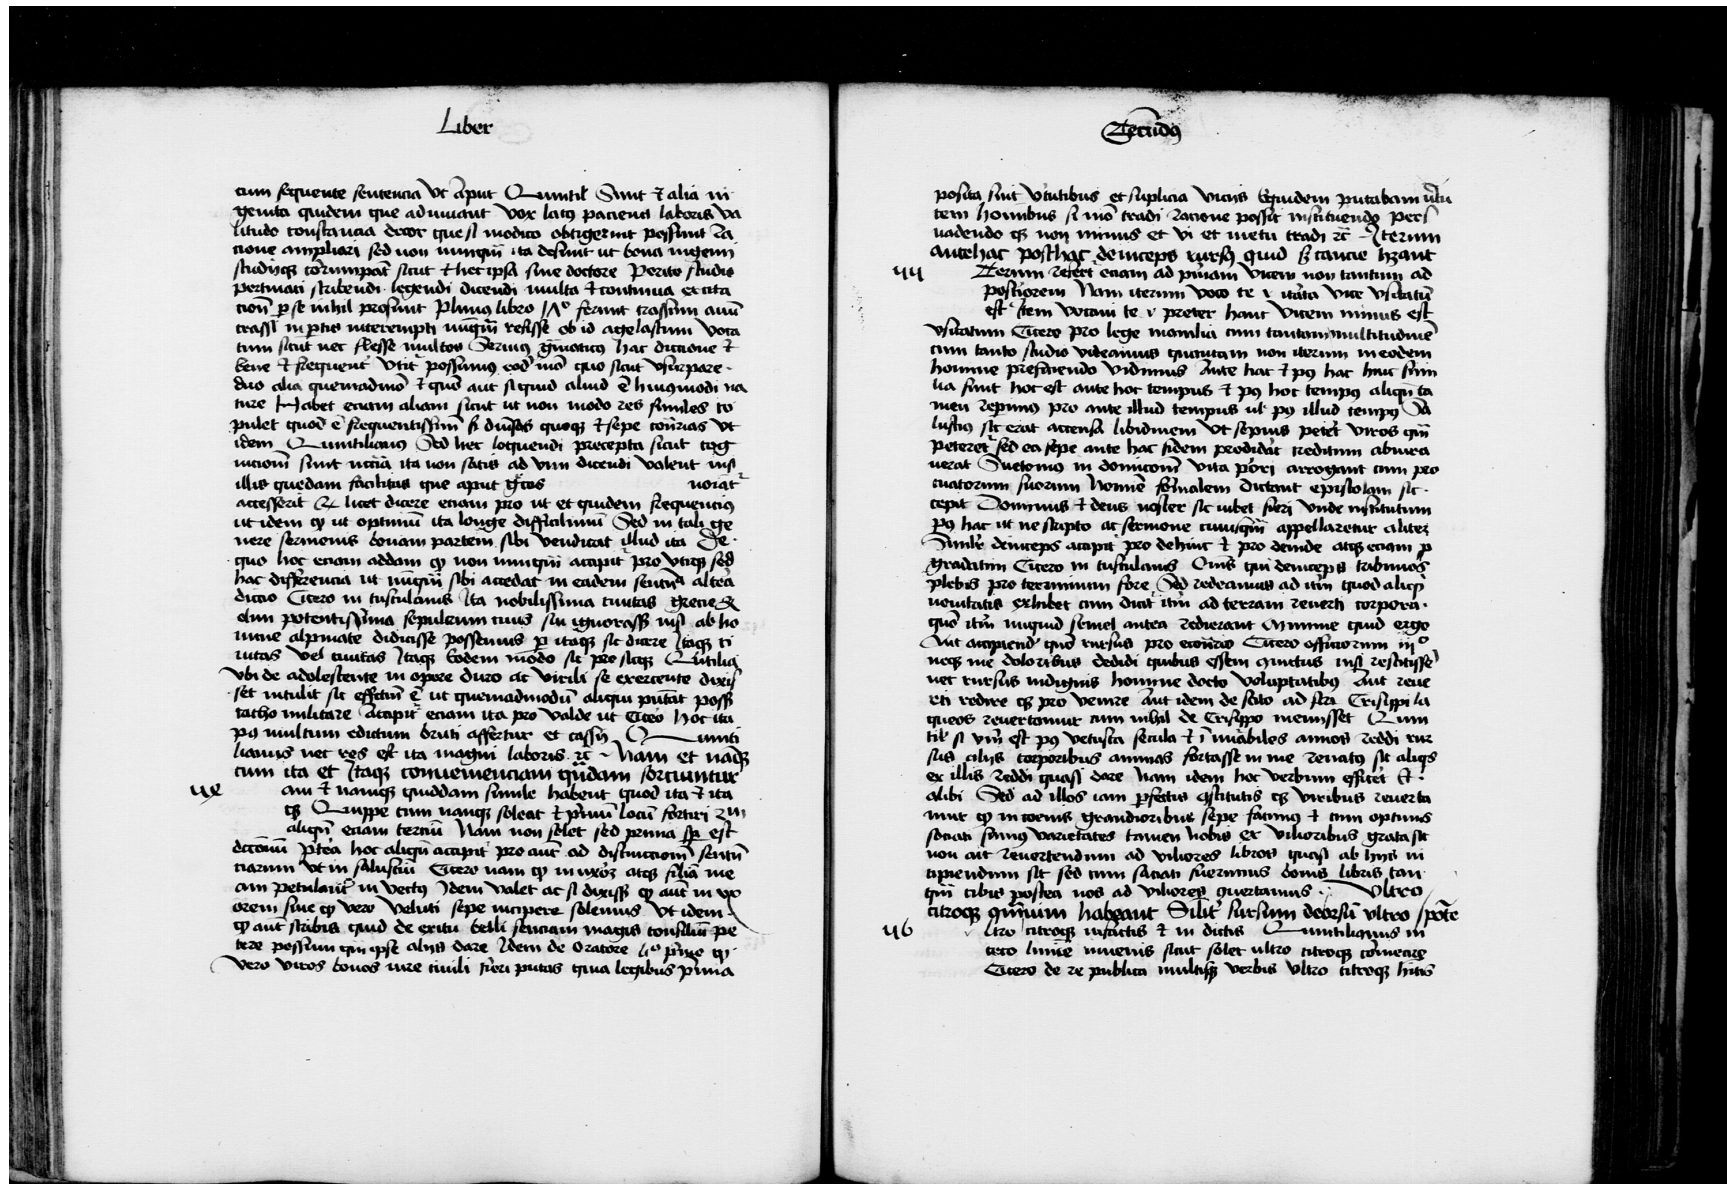 Liber
cum sequente sentencia Ut aput Quintil Sunt et alia in
genita quidem que adiuuant vox latus paciens laboris va
litudo constancia decor que si modico obtigerint possunt ra
cione ampliari sed non nunquam ita desunt ut bona ingenii
studijque corrumpant sicut et hec ipsa sine doctore Perito studio
pertinati scribendi legendi dicendi multa et continua exercita
cione per se nihil prosunt Plinius libro ferunt crassum auum
crassi in interempti nunquam risisse ob id agelastum voca
tum sicut nec flesse multos Seruius gramaticus hac dictione et
bene et frequenter utitur possumus eodem modo quo sicut usurpare
duo alia quemadmodum et quomodo aut siquid aliud est huiusmodi na
ture Habet eciam aliam sicut ut non modo res similes co
pulet quod est frequentissimum sed diuersas quoque et sepe contrarias Ut
idem Quintilianus Sed hec loquendi precepta sicut cog
nicioni sunt necessaria ita non satis ad vim dicendi valent nisi
illis quedam facilitas que aput grecos uocatur
accesserit Et licet dicere eciam pro ut et quidem frequencius
ut idem quod ut optimum ita longe difficilimum Sed in tali ge
nere sermonis bonam partem sibi vendicat illud ita De
quo hoc eciam addam quod non nunquam accipitur pro utique sed
hac differencia ut nunquam sibi accedat in eadem sententia altera
dictio Cicero in tusculanis Ita nobilissima ciuitas grecie et
olim potentissima sepulcrum ciuis sui ignorasset nisi ab ho
mine alpinate didicisse possemus per itaque sic dicere Itaque ci
uitas vel ciuitas Itaque Eodem modo sic pro sicque Quintilianus
Ubi de adolescente in opere duro ac virili se exercente dixis
set intulit sic effectum est ut quemadmodum aliqui putant posset
racho militare Accipitur eciam ita pro valde ut Cicero Hoc ita
post multum edictum bruti affertur et cassij Quinti
lianus nec res est ita magni laboris etc Nam et namque
cum ita et Itaque conueuienciam quandam sorciuntur
am et namque quiddam simile habent quod ita et ita
que Quippe cum namque soleat et primum locum sortiri
aliquando eciam tercium Nam non solet sed prima semper est
dictionum Preterea hoc aliquando accipitur pro autem ad distinctionem senten
ciarum Ut in salustium Cicero nam quod in uxorem atque filiam me
am petulanter inuectus Idem valet ac si dixisset quod autem in ux
orem siue quod vero veluti sepe incipere solemus Ut idem
quod autem scribis quid de exitu belli senciam magis consilium pe
tere possum quam ipse alijs dare Idem de Oratore primo quod
vero viros bonos iure ciuili fieri putas quia legibus primia
Secundus
posita sint Virtutibus et suplicia vicijs Equidem putabam virtu
tem hominibus si modo tradi racione possit instituendo Pers
uadendo que non minus et vi et metu tradi etc Iterum
antehac posthac deinceps rursus quid substancie habeant
Iterum refert eciam ad primam vicem non tantum ad
posteriorem Nam iterum voco te
est Item vocaui te preter hanc vicem minus est
usitatum Cicero pro lege manilia cum tantam multitudinem
cum tanto studio videamus quantam non iterum in eodem
homine preficiendo vidimus Ante hac et post hac huic simi
lia sunt hoc est ante hoc tempus et post hoc tempus aliquando ta
men reperimus pro ante illud tempus uel post illud tempus Sa
lustius sic erat accensa libidinem Ut sepius peteret viros quam
peteretur sed ea sepe ante hac fidem prodiderat creditum abiura
uerat Suetonius in domiciani vita pari arrogancia cum pro
curatorum suorum Nomine formalem dictaret epistolam sic
cepit Dominus et deus noster sic iubet fieri Unde institutum
post hac ut ne scripto ac sermone cuiusquam appellaretur aliter
Similiter deinceps accipitur pro dehinc et pro deinde atque eciam per
gradatim Cicero in tusculanis Omnis qui deinceps tribunos
plebis pro terminum fore Sed redeamus ad iterum quod aliquid
nouitatis exhibet cum dicitur iterum ad terram reuerti corpora
quomodo iterum nunquid semel antea redierant Minime quid ergo
Aut accipiendum quomodo rursus pro econtrario Cicero officiorum
neque me doloribus dedidi quibus essem confectus nisi restitissem
nec rursus indignis homine docto voluptatibus Aut reue
rti redire que pro venire Aut idem de facto ad Crisippi la
queos reuertamur cum nihil de Crisippo meminisset Quin
til si verum est post vetusta secula et innumerabiles annos reddi rur
sus alijs corporibus animas fortasse in me renatus sic aliquis
ex illis Reddi quasi dare Nam idem hoc verbum efficeret Et
alibi Sed ad illos iam perfectis constitutis que viribus reuerta
mur quod in coenis grandioribus sepe facimus et cum optimis
sociati sumus varietates tamen nobis ex vilioribus grata sit
non ait reuertendum ad viliores libros quasi ab hijs in
cipiendum sit sed cum saciati fuerimus bonis libris tan
quam cibis postea nos ad viliores conuertamus Ultro
citroque quantum habeant Similiter sursum deorsum ultro sponte
ltro citroque in factis et in dictis Quintilianus in
cero limine iuuenis sicut solet ultro citroque comeare
Cicero de re publica multisque verbis Ultro citroque hitis